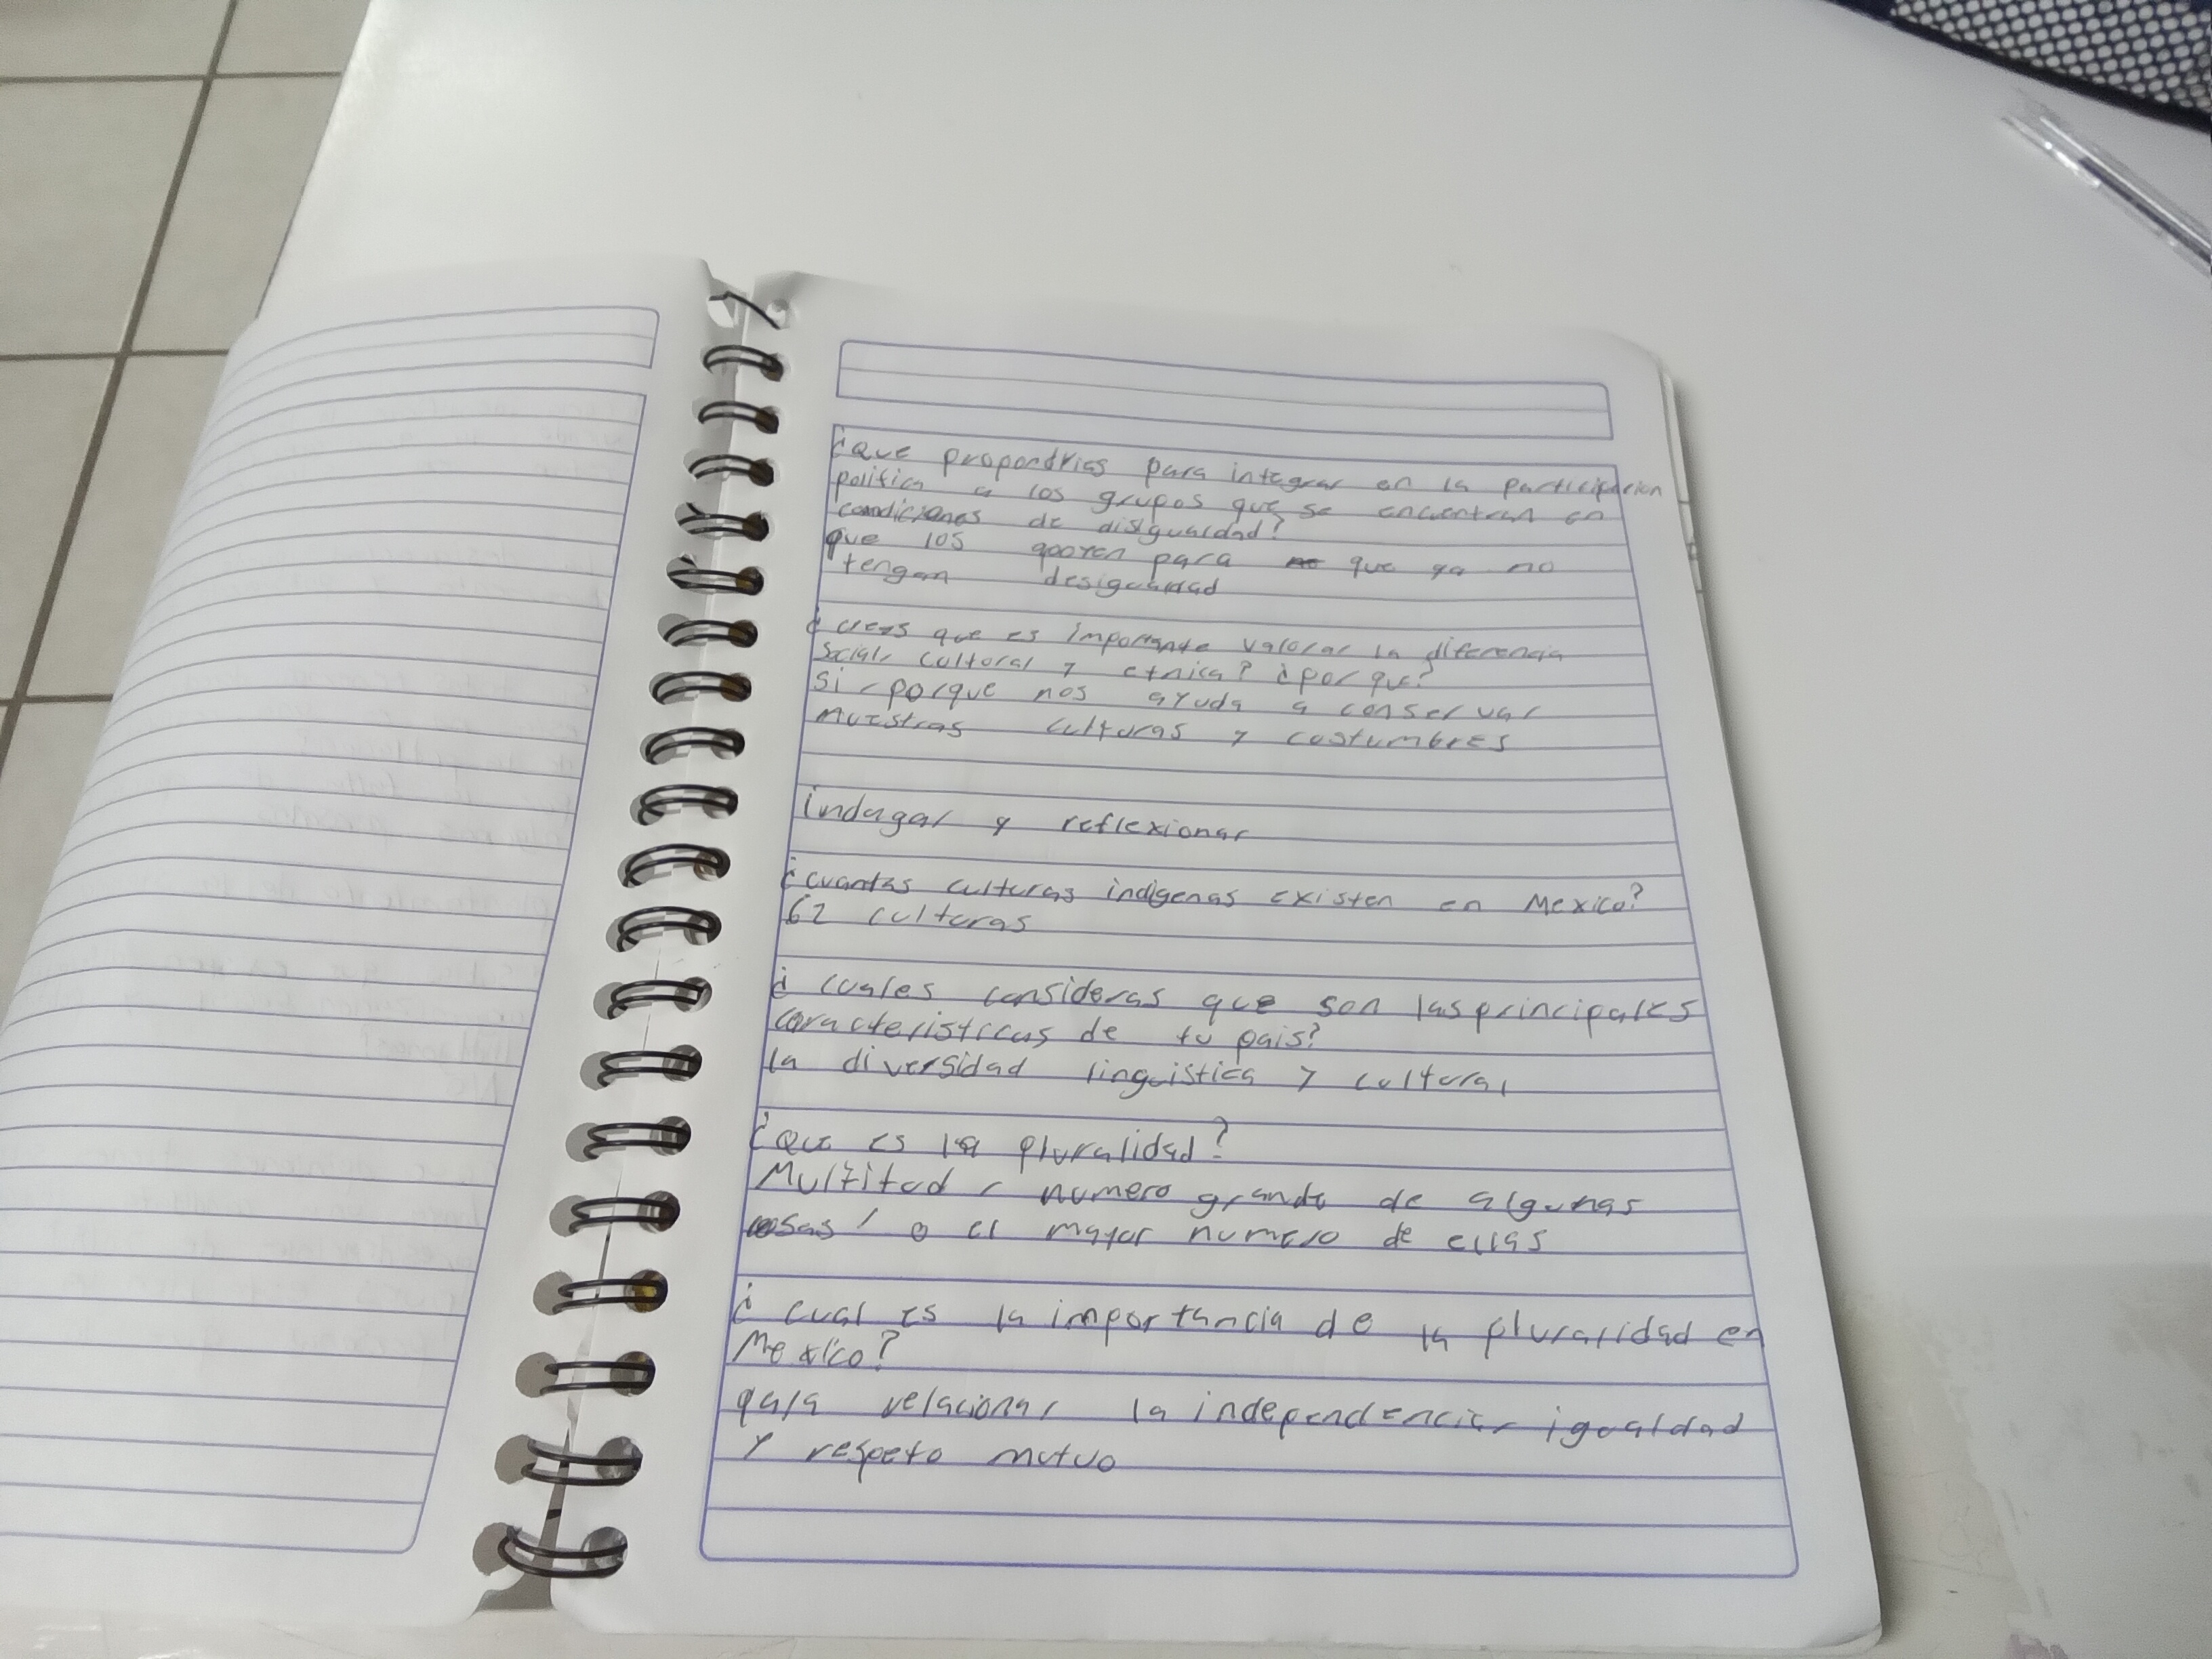 ¿Que propondrias para integrar en la participacion
politica a los grupos que se encuentran en
condiciones de disigualdad?
que los apoyen para que ya no
tengan desigualdad
¿crees que es importante valorar la diferencia
social, cultural y etnica? ¿por que?
si, porque nos ayuda a conservar
nuestras culturas y costumbres
indagar y reflexionar
¿cuantas culturas indigenas existen en Mexico?
62 culturas
¿cuales consideras que son las principales
caracteristicas de tu pais?
la diversidad linguistica y cultural
¿Que es la pluralidad?
Multitud, numero grande de algunas
cosas, o el mayor numero de ellas
¿cual es la importancia de la pluralidad en
Mexico?
para relacionar la independencia, igualdad
y respeto mutuo